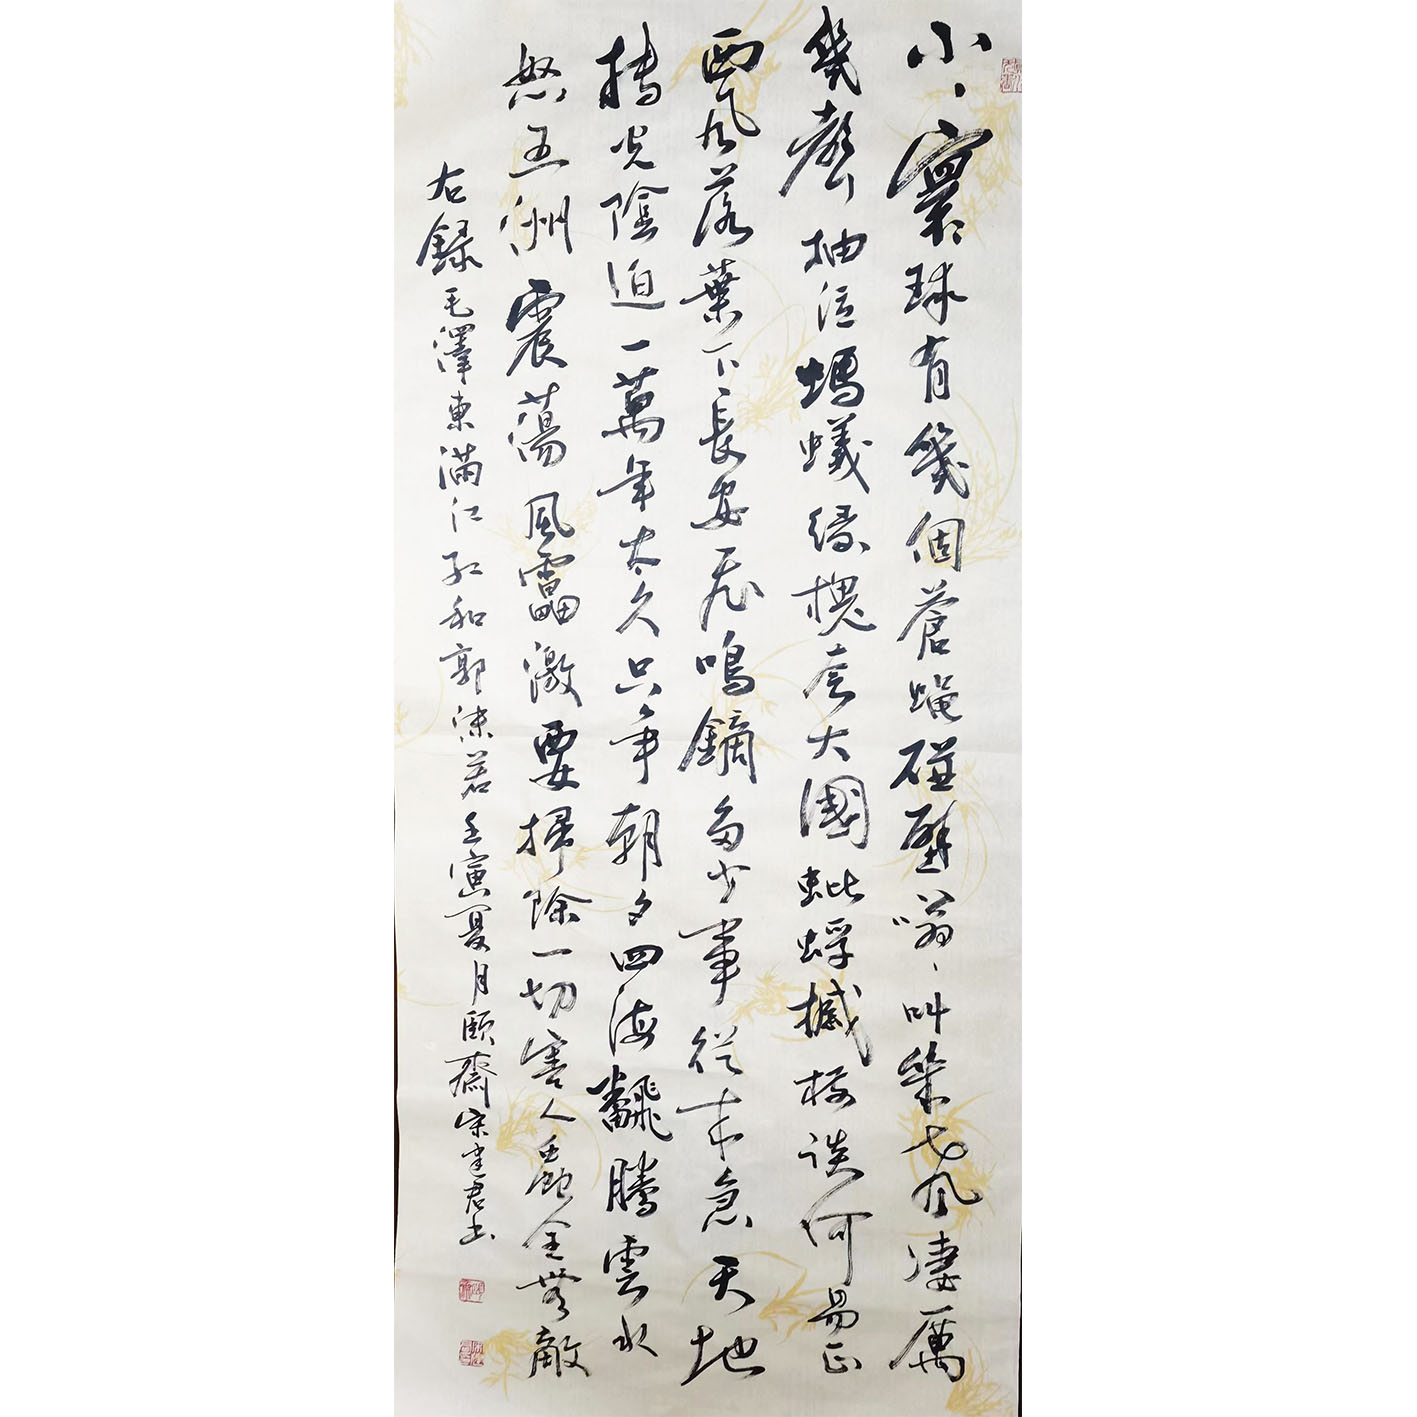 小小寰球有幾個蒼蠅碰壁嗡嗡叫幾聲凄厲
幾聲抽泣螞蟻緣槐夸大國蚍蜉撼樹談何易正
西風落葉下長安飛鳴鏑多少事從來急天地
轉光陰迫一萬年太久只爭朝夕四海飜騰雲水
怒五洲震蕩風雷激要掃除一切害人蟲全無敵
右錄毛澤東滿江紅和郭沫若壬寅夏月頤齋宋建君書